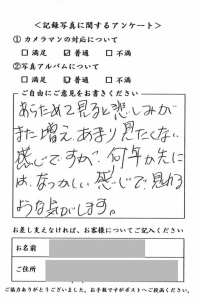 ＜記録写真に関するアンケート＞
①カメラマンの対応について
□ 満足 ☑ 普通 □ 不満
②写真アルバムについて
□ 満足 ☑ 普通 □ 不満
ご自由にご意見をお書きください
あらためて見ると悲しみが
また増え、あまり見たくない
感じですが、何年か先に
は、なつかしい感じで見れる
ような気がします。
お差し支えなければ、お客様についてご記入ください
お名前
ご住所
ご協力ありがとうございました。お手数ですがポストへご投函ください。